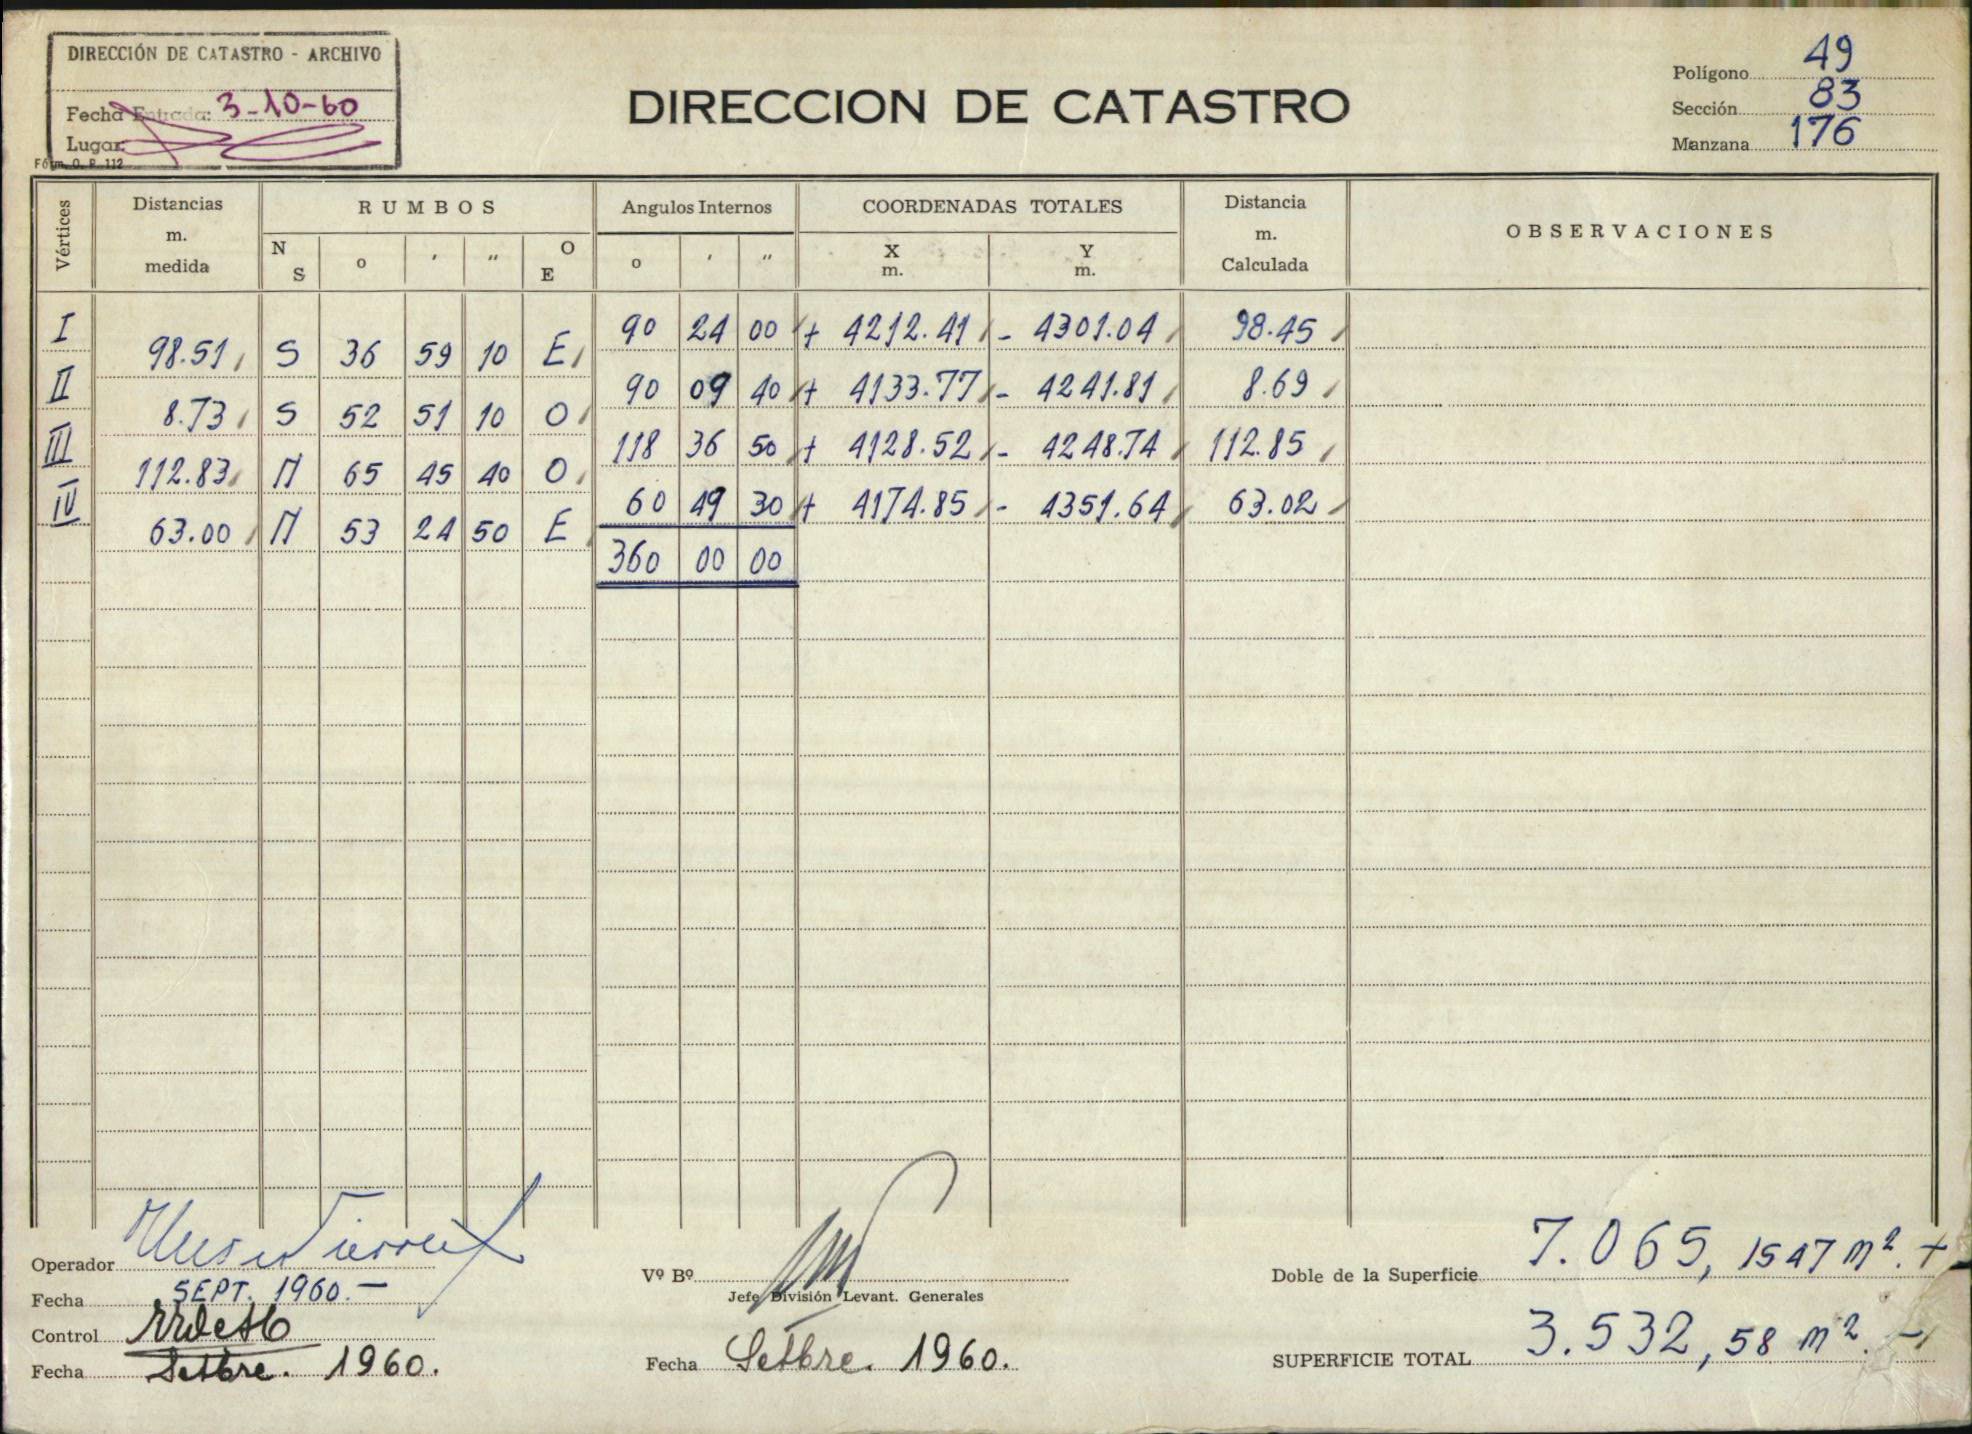 DIRECCIÓN DE CATASTRO - ARCHIVO
Fecha Entrada: 3-10-60
Lugar:
Fórm. O. P. 112
DIRECCION DE CATASTRO
Polígono 49
Sección 83
Manzana 176
Vértices
Distancias m. medida
RUMBOS
N S
o
'
"
O E
Angulos Internos
o
'
"
COORDENADAS TOTALES
X m.
Y m.
Distancia m. Calculada
OBSERVACIONES
I 90 24 00 + 4212.41 - 4301.04 98.45
98.51 S 36 59 10 E
II 90 09 40 + 4133.77 - 4241.81 8.69
8.73 S 52 51 10 O
III 118 36 50 + 4128.52 - 4248.74 112.85
112.83 N 65 45 40 O
IV 60 49 30 + 4174.85 - 4351.64 63.02
63.00 N 53 24 50 E
360 00 00
Operador
Fecha SEPT. 1960.-
Control
Fecha Setbre. 1960.
Vº Bº
Jefe División Levant. Generales
Fecha Setbre. 1960.
Doble de la Superficie 7.065,1547 m². +
SUPERFICIE TOTAL 3.532,58 m². -